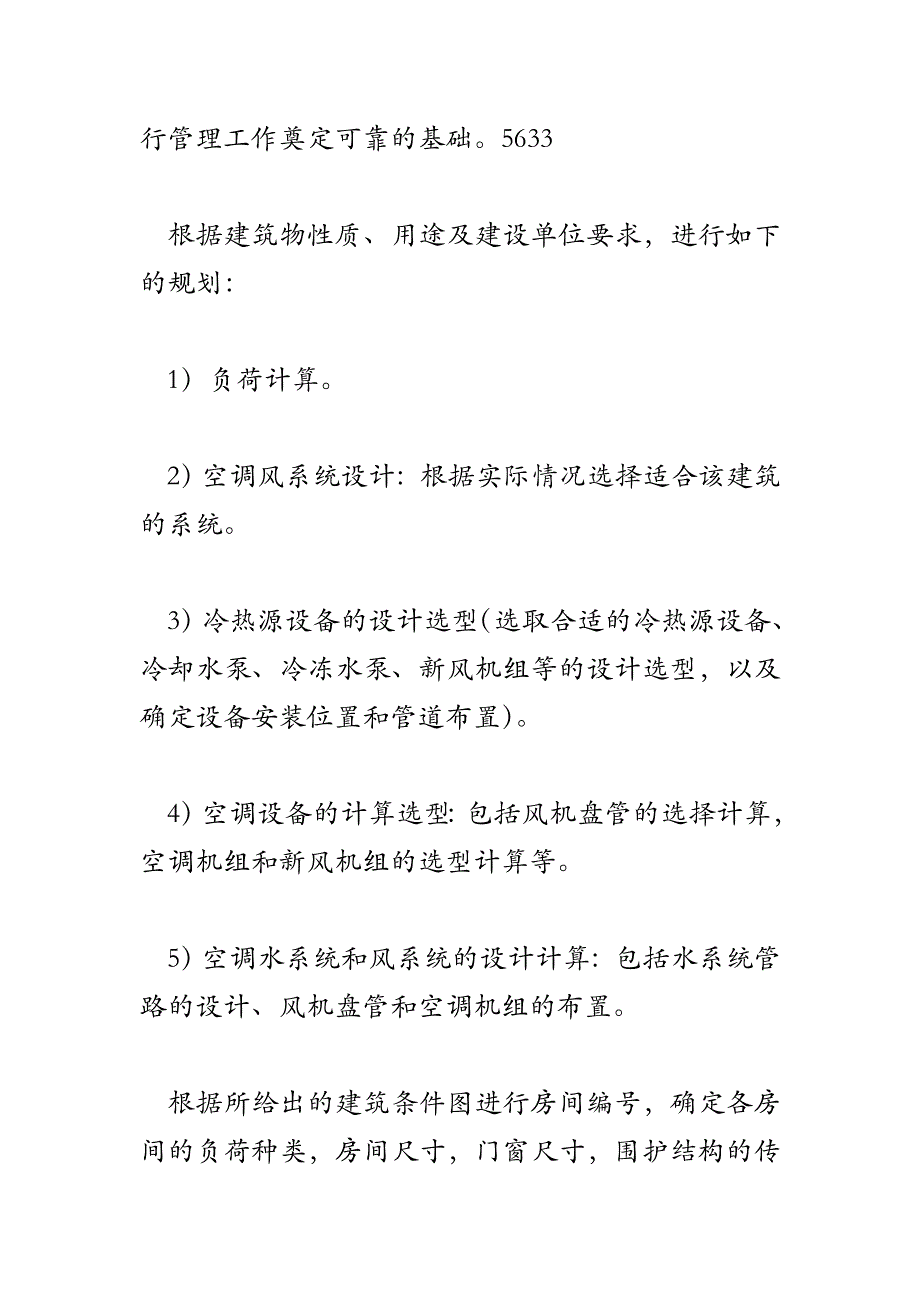 行管理工作奠定可靠的基础。5633
根据建筑物性质、用途及建设单位要求，进行如下
的规划：
1） 负荷计算。
2）空调风系统设计：根据实际情况选择适合该建筑
的系统。
3）冷热源设备的设计选型(选取合适的冷热源设备、
冷却水泵、冷冻水泵、新风机组等的设计选型，以及
确定设备安装位置和管道布置)。
4）空调设备的计算选型：包括风机盘管的选择计算，
空调机组和新风机组的选型计算等。
5）空调水系统和风系统的设计计算：包括水系统管
路的设计、风机盘管和空调机组的布置。
根据所给出的建筑条件图进行房间编号，确定各房
间的负荷种类，房间尺寸，门窗尺寸，围护结构的传